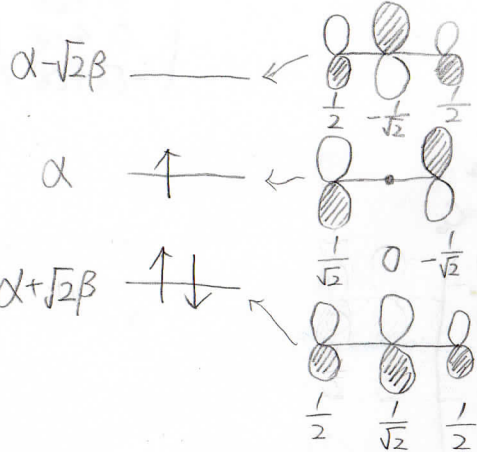 α-√2β
1/2 -1/√2 1/2
α
1/√2 0 -1/√2
α+√2β
1/2 1/√2 1/2